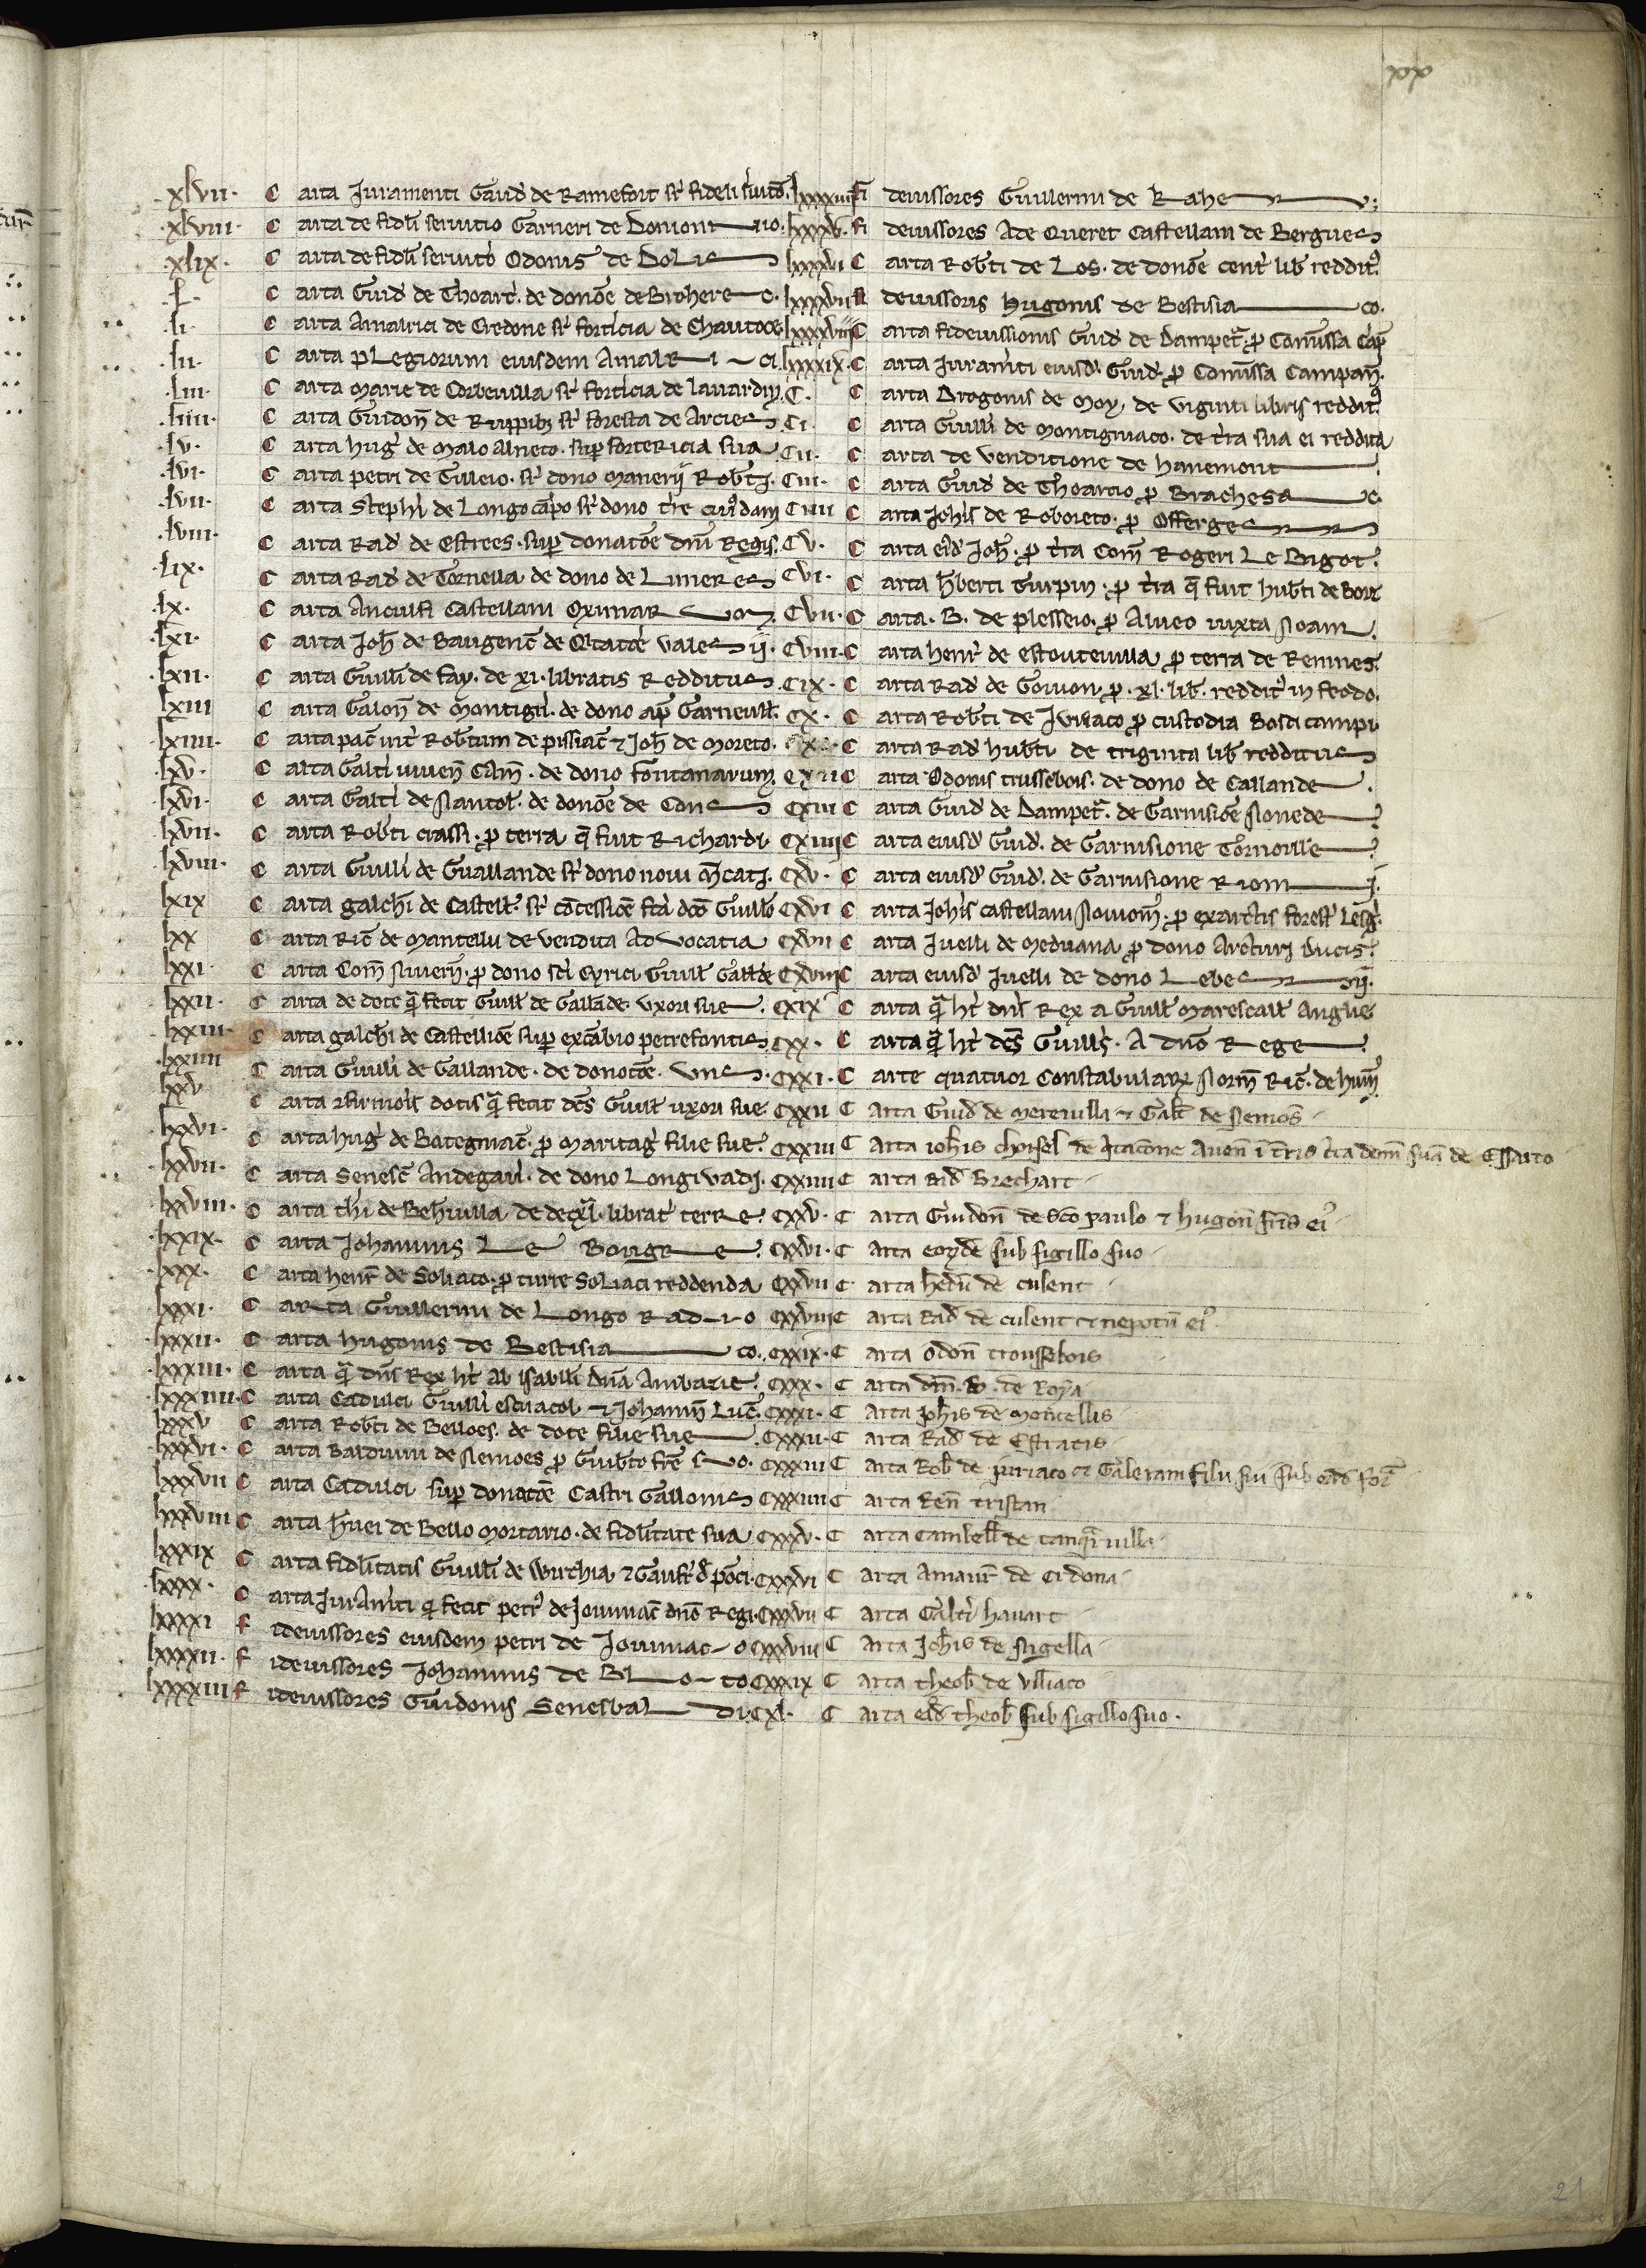 xx
.xlvii. C arta Juramenti Guid de Ramefort sr fideli seruito.
.xlviii. C arta de fidli seruitio Garneri de Domont no.
.xlix. C arta de fidli seruito Odonis de Dolis
.l. C arta Guid de Thoarc. de donoe de Brohere c.
.li. C arta Amalrici de Credone sr forticia de Chantoce
.lii. C arta plegiorum eiusdem Amalri ci
.liii. C arta Marie de Corbenilla. sr forticia de lauardin
.liiii. C arta Guidon de Ruppib3 sr foresta de Arcies
.lv. C arta hug de Malo alneto. sup fortericia sua
.lvi. C arta petri de Tilleio. sr dono manerii Robti.
.lvii. C arta Stephi de Longo capo sr dono tre
.lviii. C arta Rad de Estrees. sup donatoe dni Regis.
.lix. C arta Rad de Tornella de dono de Lineres
.lx. C arta Castellani Oximar
.lxi. C arta Joh de Baugenc de vales ij.
.lxii. C arta Guilli de Fay. de xi. libratis Redditus
.lxiii C arta Galon de Montigni. de dono ap Garneuill.
.lxiiii. C arta pac int Robtum de pissiac & Joh de Moreto.
.lxv. C arta Galti iuuen Cam. de dono Fontanarum
.lxvi. C arta Galti de Nantol. de donoe de
.lxvii. C arta Robti crassi. p terra q fuit Richardi.
.lxviii. C arta Guilli de Guallande sr dono noui mcati.
lxix C arta galchi de Castell. sr cocessioe fca dco Guillo
lxx C arta Ric de Mantelli de vendita Aduocatia
lxxi C arta Com Niuern. p dono sci Cyrici Guill Gallde
lxxii C arta de dote qa fecit Guill de Gallade. vxori sue
lxxiii. C arta galchi de Castellioe sup excabio petrefontis
lxxiiii C arta Guilli de Gallande. de donatoe.
lxxv C arta dotis qa fecit dcs Guill uxori sue.
lxxvi. C arta hug de Botegniac. p Maritag filie sue.
lxxvii. C arta Senesc Andegau. de dono Longi vadi.
lxxviii. C arta thi de Behuilla librat terre.
.lxxix. C arta Johannis Le Bougre
lxxx. C arta henr de Soliaco. p turre Soliaci reddenda
lxxxi. C arta Guillermi de Longo Radio
.lxxxii. C arta hugonis de Bestisia co.
.lxxxiii. C arta qa dns Rex ht ab isabelli dna Ambazie.
.lxxxiiii. C arta Cadulci Guilli escuacol & Johann Luc.
lxxxv C arta Robti de Belloes. de dote filie sue
lxxxvi. C arta Balduini de Nemoes p Guibto fre suo.
lxxxvii C arta Cadulci sup donatoe Castri Gallonis
lxxxviii C arta huei de Bello Mortario. de fidlitate sua
lxxxix C arta fidlitatis Guilli de Wirchia & Gaufr
.lxxxx. C arta Juramti q fecit petr de Jouiniac dno Regi.
lxxxxi f ideiussores eiusdem petri de Jouiniac o
lxxxxii. f ideiussores Johannis de Blo to
lxxxxiii f ideiussores Guidonis Senescal di.
lxxxxiiii fi deiussores Guillermi de Rahe
lxxxxv. fi deiussores Ade Queret Castellani de Bergues
lxxxxvi C arta Robti de Los. de donoe cent lib reddit.
lxxxxvii fi deiussoris hugonis de Bestisia co.
lxxxxviii C arta fideiussionis Guid de Dampet. p Comissa Cap
lxxxxix. C arta Juramti eiusd Guid. p Comissa Campan.
C. C arta Drogonis de Moy, de viginti libris reddit.
Ci. C arta Guilli de Montigniaco. de tra sua ei reddita
Cii. C arta de venditione de hanemont
Ciii. C arta Guid de Thoarcio p Brachesa c.
Ciiii C arta Johis de Roboreto. p Offerges
Cv. C arta eid Joh. p tra Com Rogeri Le Bigot.
Cvi. C arta hberti Turpin. p tra q fuit hubti de
Cvii. C arta. B. de plesseio. p Alneo iuxta Noam.
Cviii. C arta henr de estouteuilla p terra de Remnes.
Cix. C arta Rad de Gouion. p. xl. lib. reddit in feodo.
Cx. C arta Robti de Juriaco p custodia Bosci campi
C arta Rad hubti de triginta lib redditus
Cxii C arta Odonis trussebois. de dono de Callande
Cxiii C arta Guid de Dampet. de Garnisioe Nonede
Cxiiii C arta eiusd Guid. de Garnisione Tornoille
Cxv. C arta eiusd Guid. de Garnisione Riom j.
Cxvi C arta Johis castellani Nouiom. p exartis forest Lesg.
Cxvii C arta Juelli de Meduana p dono Arcturi Ducis.
Cxviii C arta eiusd Juelli de dono Lebe ij.
Cxix C arta qa ht dns Rex a Guill Marescall Anglie
Cxx. C arta qa ht dcs Guills. A dno Rege
Cxxi. C arte quatuor Constabularz Norm Ric. de hum
Cxxii C arta Guid de Mereuilla & Galt de Nemos
Cxxiii C arta iohis choisel de Essarto
Cxxiiii C arta Rad Brechart
Cxxv. C arta Guidon de sco paulo & hugon fris ei
Cxxvi. C arta eoyde sub sigillo suo
Cxxvii C arta de culent
Cxxviii C arta Rad de culent & nepotu ei
.Cxxix. C arta odon troussebois
Cxxx. C arta dni. B. de Roya
Cxxxi. C arta Johis de Moncellis
.Cxxxii. C arta Rad de Estratis
Cxxxiii C arta Rob de iuriaco & Galeram filii sui sub ead for
Cxxxiiii C arta Ren tristan
Cxxxv. C arta cambell de tanqruilla
Cxxxvi C arta Amaur de Credona
Cxxxvii C arta Galti hauart
Cxxxviii C arta Johis de Nigella
Cxxxix C arta theob de
Cxl. C arta eid theob sub sigillo suo.
21